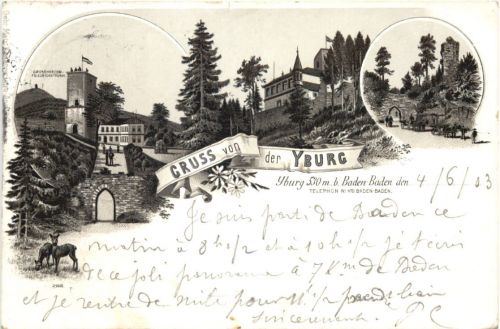 GROSSHERZOG
FRIEDRICHSTURM.
GRUSS von der YBURG
Yburg 520 m. b. Baden Baden den 4/6/03
TELEPHON Nr. 478 BADEN-BADEN.
Je suis parti de Baden ce
matin à 8 h 1/2 et à 10 h 1/2 je t'écris
de ce joli panorama à 7 Km de Baden
et je rentre de suite pour 11 1/2
sincèrement